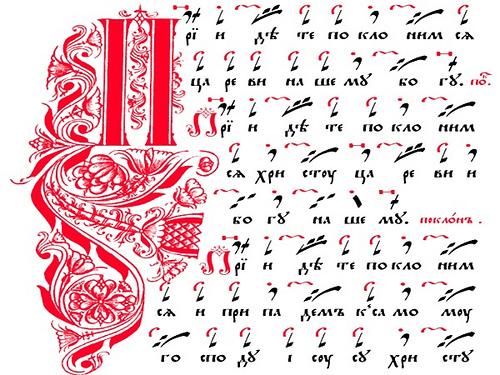 П рї и дѣ те по кло ним сѧ
ца ре ви на ше му бо гу. по̑.
П рї и дѣ те по кло ним
сѧ хри стоу ца ре ви и
бо гу на ше му. покло́нъ.
П рї и дѣ те по кло ним
сѧ и при па демъ к'са мо моу
го спо ду і соу су хри сту